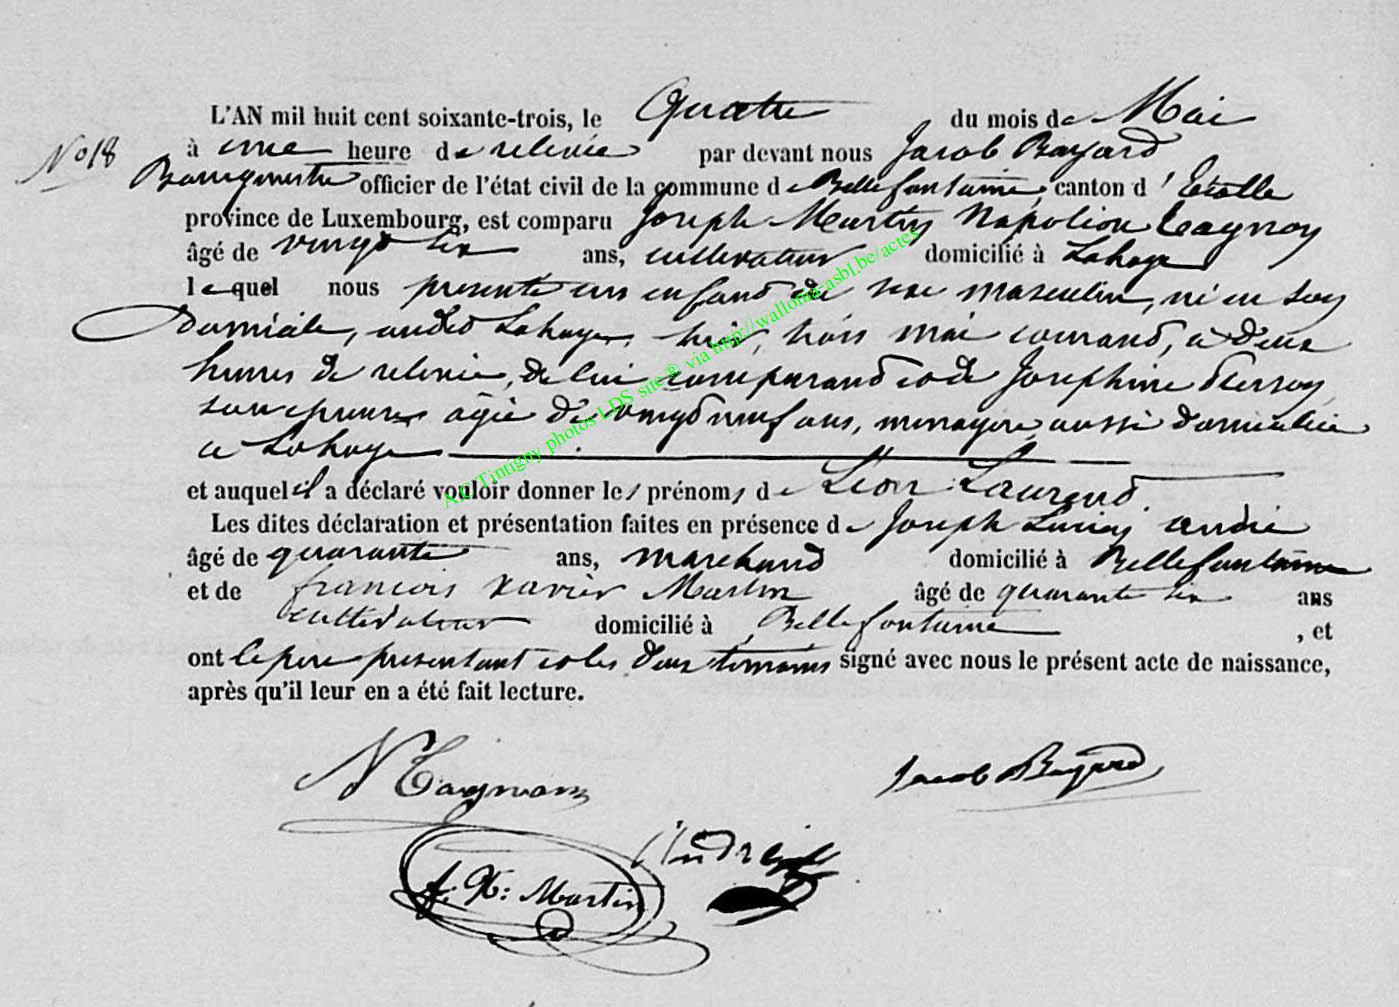 L'AN mil huit cent soixante-trois, le Quatre du mois de Mai
No 18
à une heure de relevée par devant nous Jacob Bayard
Bourgmestre officier de l'état civil de la commune de Bellefontaine, canton d'Etalle
province de Luxembourg, est comparu Joseph Martin Napoléon
âgé de vingt six ans, cultivateur domicilié à Lahage
lequel nous présente un enfant du sexe masculin, né en son
domicile, audit Lahage, hier, trois mai courant, à deux
heures de relevée, de lui comparant et de Joséphine
son épouse âgée de vingt neuf ans, ménagère, aussi domiciliée
à Lahage
et auquel il a déclaré vouloir donner les prénoms de Léon Laurend
Les dites déclaration et présentation faites en présence de Joseph Lucien André
âgé de quarante ans, marchand domicilié à Bellefontaine
et de françois xavier Martin âgé de quarante six ans
cultivateur domicilié à Bellefontaine , et
ont le père présentant et les deux témoins signé avec nous le présent acte de naissance,
après qu'il leur en a été fait lecture.
Jacob Bayard
André
f. X: Martin
A.C Tintigny photos LDS site @ via http://wallonia-asbl.be/actes